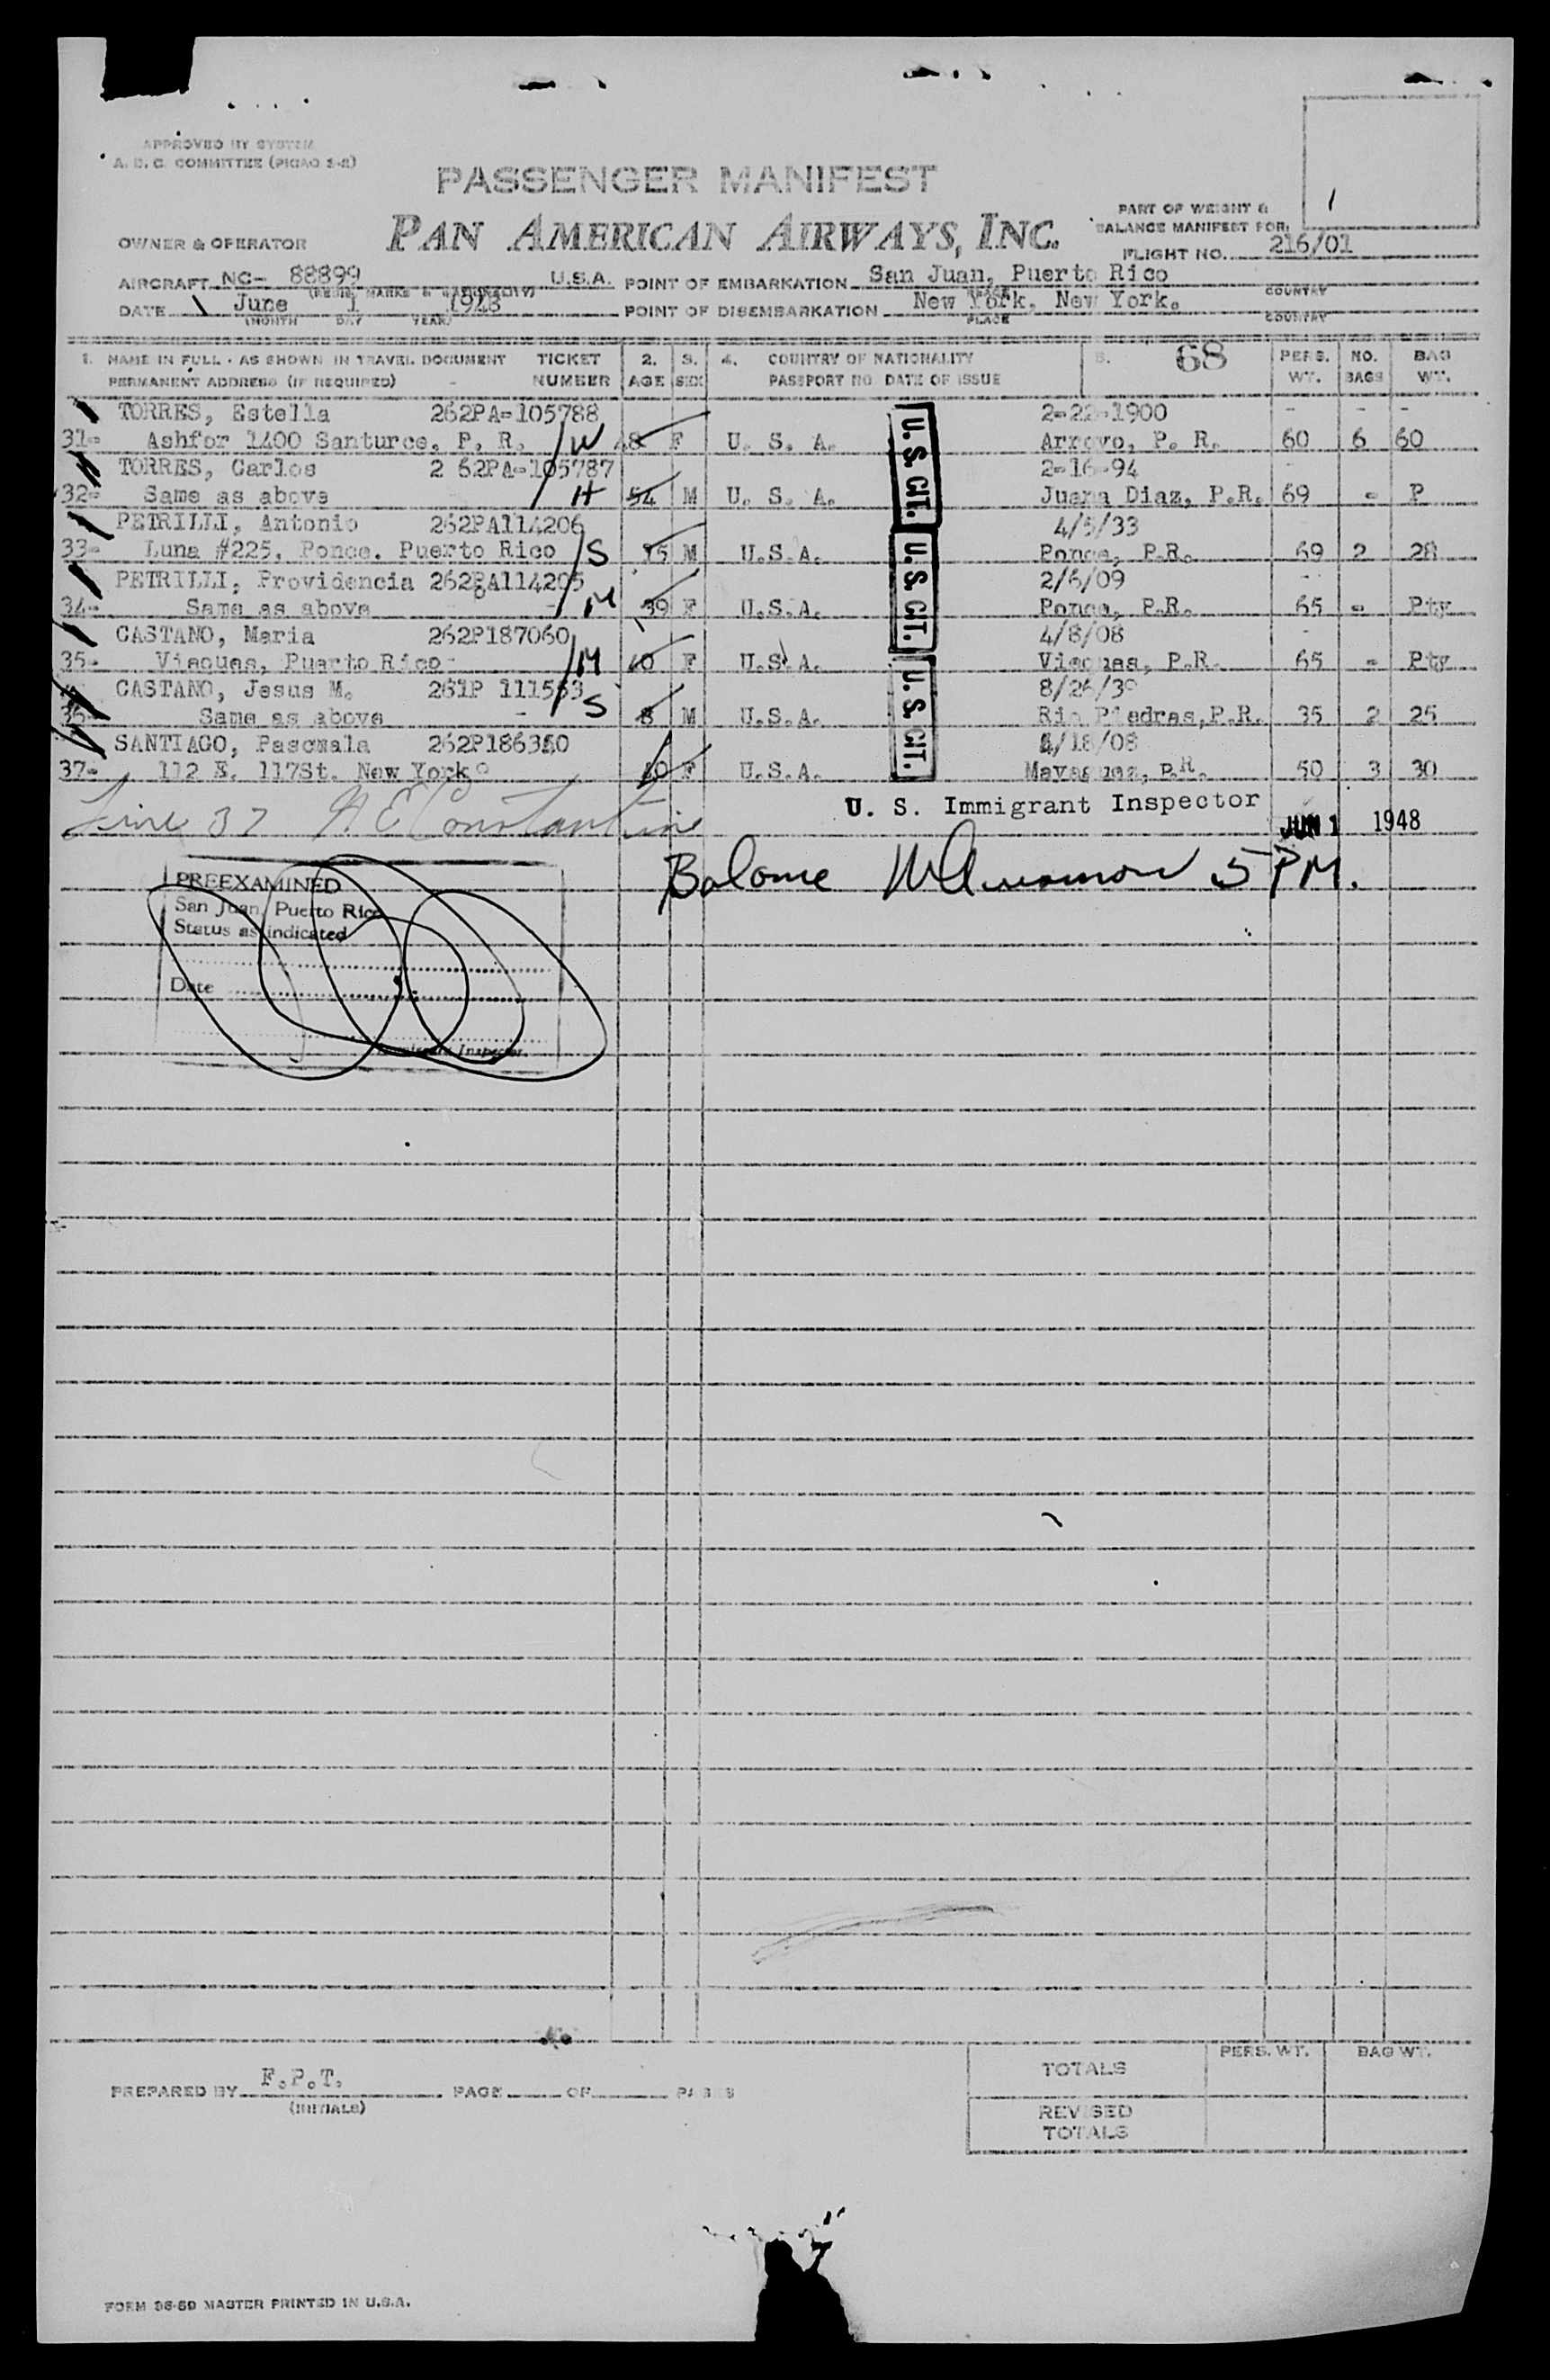 APPROVED BY SYSTEM
A. D. C. COMMITTEE (PICAO 2-2)
PASSENGER MANIFEST
PAN AMERICAN AIRWAYS, INC.
OWNER & OPERATOR
PART OF WEIGHT &
BALANCE MANIFEST FOR:
FLIGHT NO. 216/01
AIRCRAFT NC- 88899 U.S.A. POINT OF EMBARKATION San Juan, Puerto Rico
COUNTRY
DATE June 1 1948 POINT OF DISEMBARKATION New York. New York.
(MONTH DAY YEAR) PLACE COUNTRY
1. NAME IN FULL - AS SHOWN IN TRAVEL DOCUMENT TICKET 2. 3. 4. COUNTRY OF NATIONALITY 5. 68 PERS. NO. BAG
PERMANENT ADDRESS (IF REQUIRED) NUMBER AGE SEX PASSPORT NO DATE OF ISSUE WT. BAGS WT.
TORRES, Estella 262PA-105788 2-22-1900 - - -
31- Ashfor 1400 Santurce, P. R. W 48 F U. S. A. Arroyo, P. R. 60 6 60
TORRES, Carlos 2 62PA-105787 2-16-94 -
32- Same as above H 54 M U. S. A. Juana Diaz, P.R. 69 - P
PETRILLI, Antonio 262PA114206 4/5/33
33- Luna #225. Ponce. Puerto Rico S 15 M U.S.A. Ponce, P.R. 69 2 28
PETRILLI, Providencia 262PA114205 2/6/09
34- Same as above M 39 F U.S.A. Ponce, P.R. 65 - Pty
CASTANO, Maria 262P187060 4/8/08
35- Vieques, Puerto Rico M 40 F U.S.A. Vieques, P.R. 65 - Pty
CASTANO, Jesus M. 261P 111553 8/26/39
36- Same as above S 8 M U.S.A. Rio Piedras,P.R. 35 2 25
SANTIAGO, Pascuala 262P186350 /18/08
37- 112 E. 117St. New York 40 F U.S.A. Mayaguez, P.R. 50 3 30
U.S. CIT.
U.S. CIT.
U.S. CIT.
U. S. Immigrant Inspector
JUN 1 1948
Line 37 A E Constantine
Balance 5 PM.
PREEXAMINED
San Juan, Puerto Rico
Status as indicated
Date
Immigrant Inspector
TOTALS PERS. WT. BAG WT.
PREPARED BY F.P.T. PAGE OF PAGES
(INITIALS)
REVISED
TOTALS
FORM 36-59 MASTER PRINTED IN U.S.A.